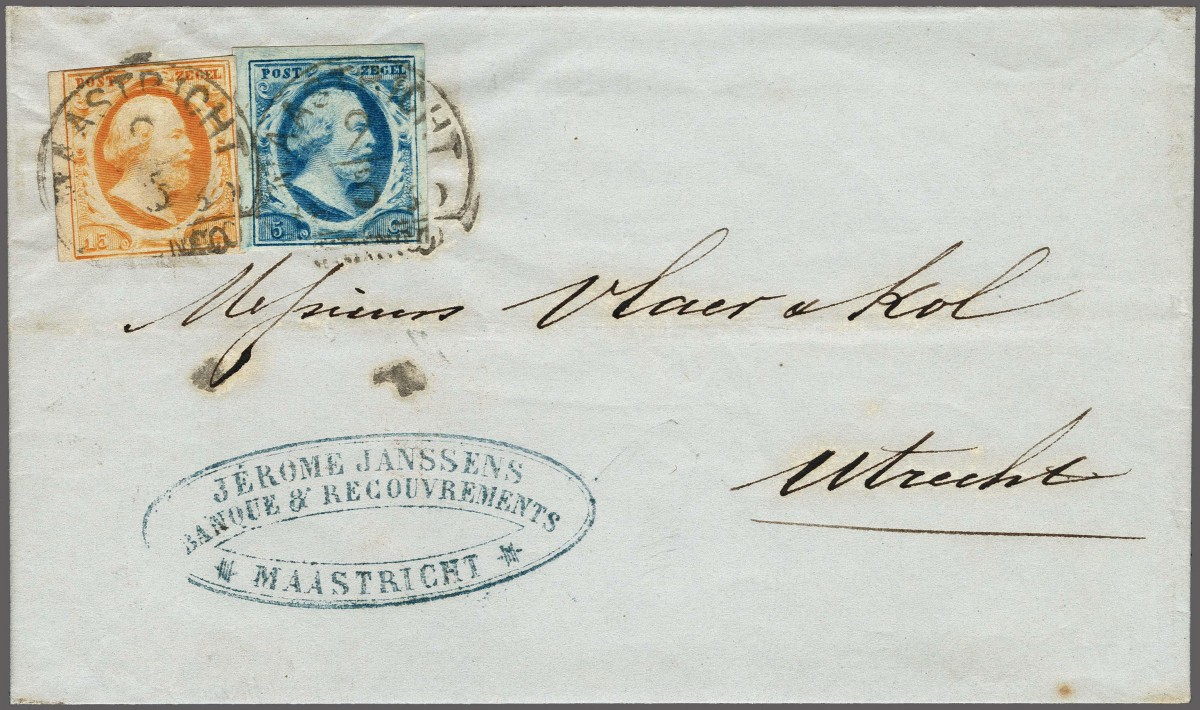 POST ZEGEL
15 C
POST ZEGEL
5 C
MAASTRICHT
MAASTRICHT
Messieurs Vlaer & Kol
Utrecht
JÉROME JANSSENS
BANQUE & RECOUVREMENTS
MAASTRICHT